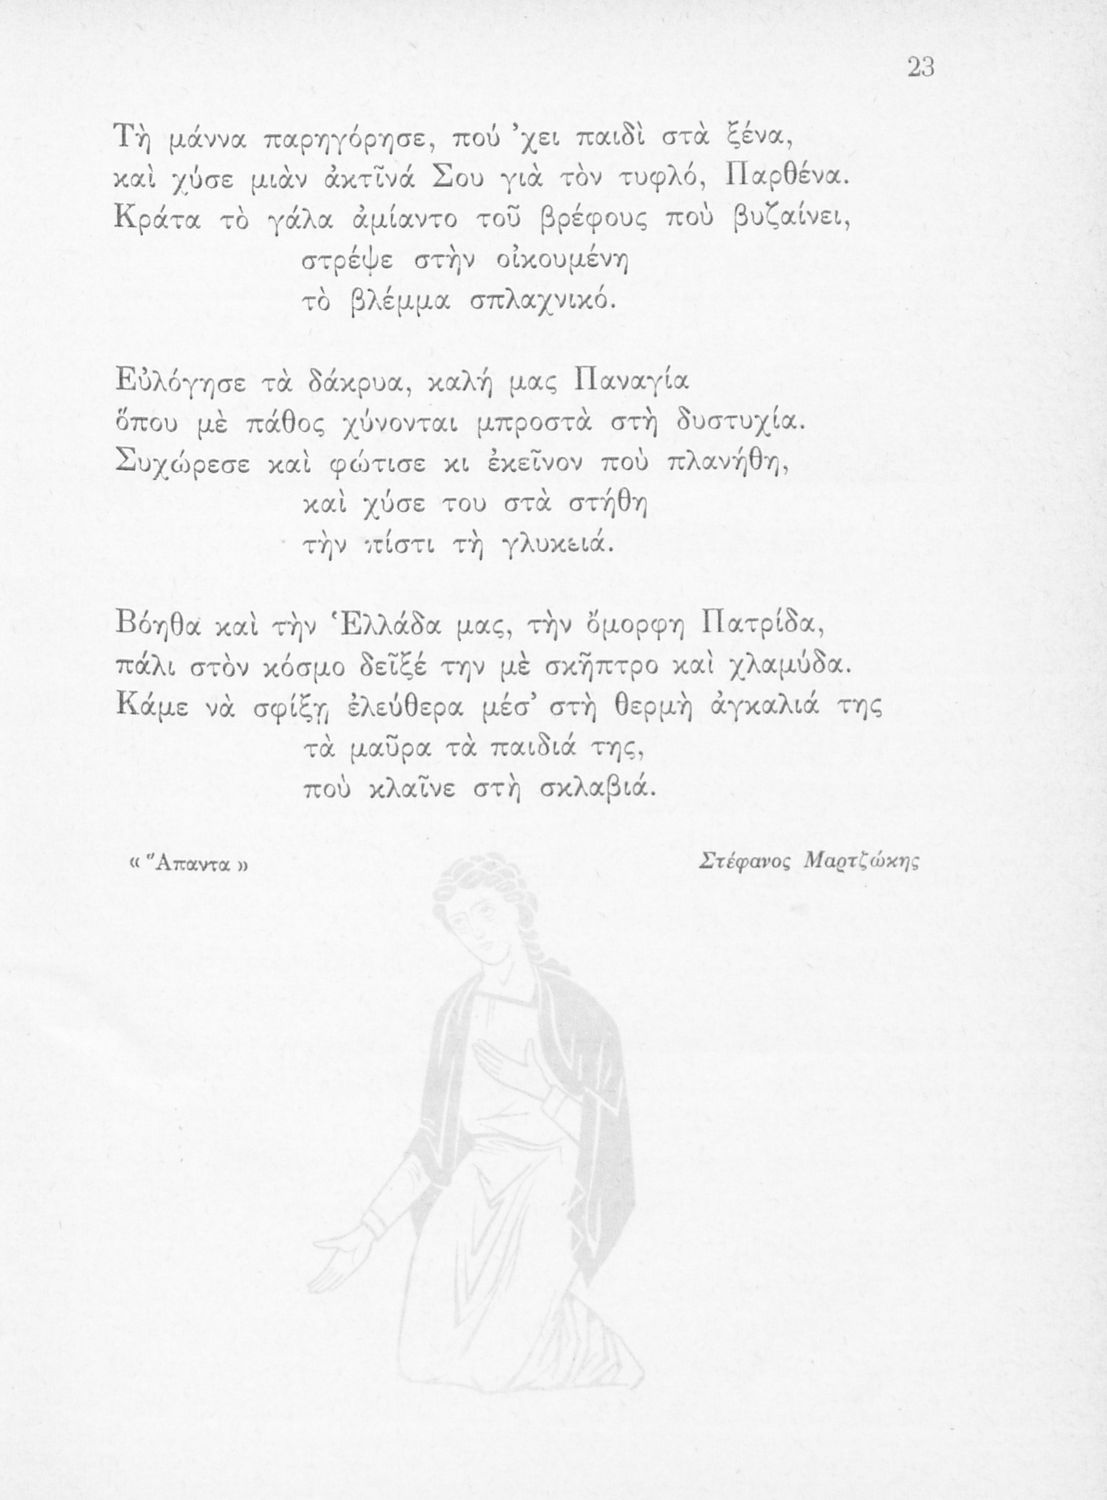 23
Τὴ μάννα παρηγόρησε, πού ’χει παιδὶ στὰ ξένα,
καὶ χύσε μιὰν ἀκτῖνά Σου γιὰ τὸν τυφλό, Παρθένα.
Κράτα τὸ γάλα ἀμίαντο τοῦ βρέφους ποὺ βυζαίνει,
στρέψε στὴν οἰκουμένη
τὸ βλέμμα σπλαχνικό.
Εὐλόγησε τὰ δάκρυα, καλή μας Παναγία
ὅπου μὲ πάθος χύνονται μπροστὰ στὴ δυστυχία.
Συχώρεσε καὶ φώτισε κι ἐκεῖνον ποὺ πλανήθη,
καὶ χύσε του στὰ στήθη
τὴν πίστι τὴ γλυκειά.
Βόηθα καὶ τὴν Ἑλλάδα μας, τὴν ὄμορφη Πατρίδα,
πάλι στὸν κόσμο δεῖξέ την μὲ σκῆπτρο καὶ χλαμύδα.
Κάμε νὰ σφίξῃ ἐλεύθερα μέσ’ στὴ θερμὴ ἀγκαλιά της
τὰ μαῦρα τὰ παιδιά της,
ποὺ κλαῖνε στὴ σκλαβιά.
« Ἅπαντα » Στέφανος Μαρτζώκης